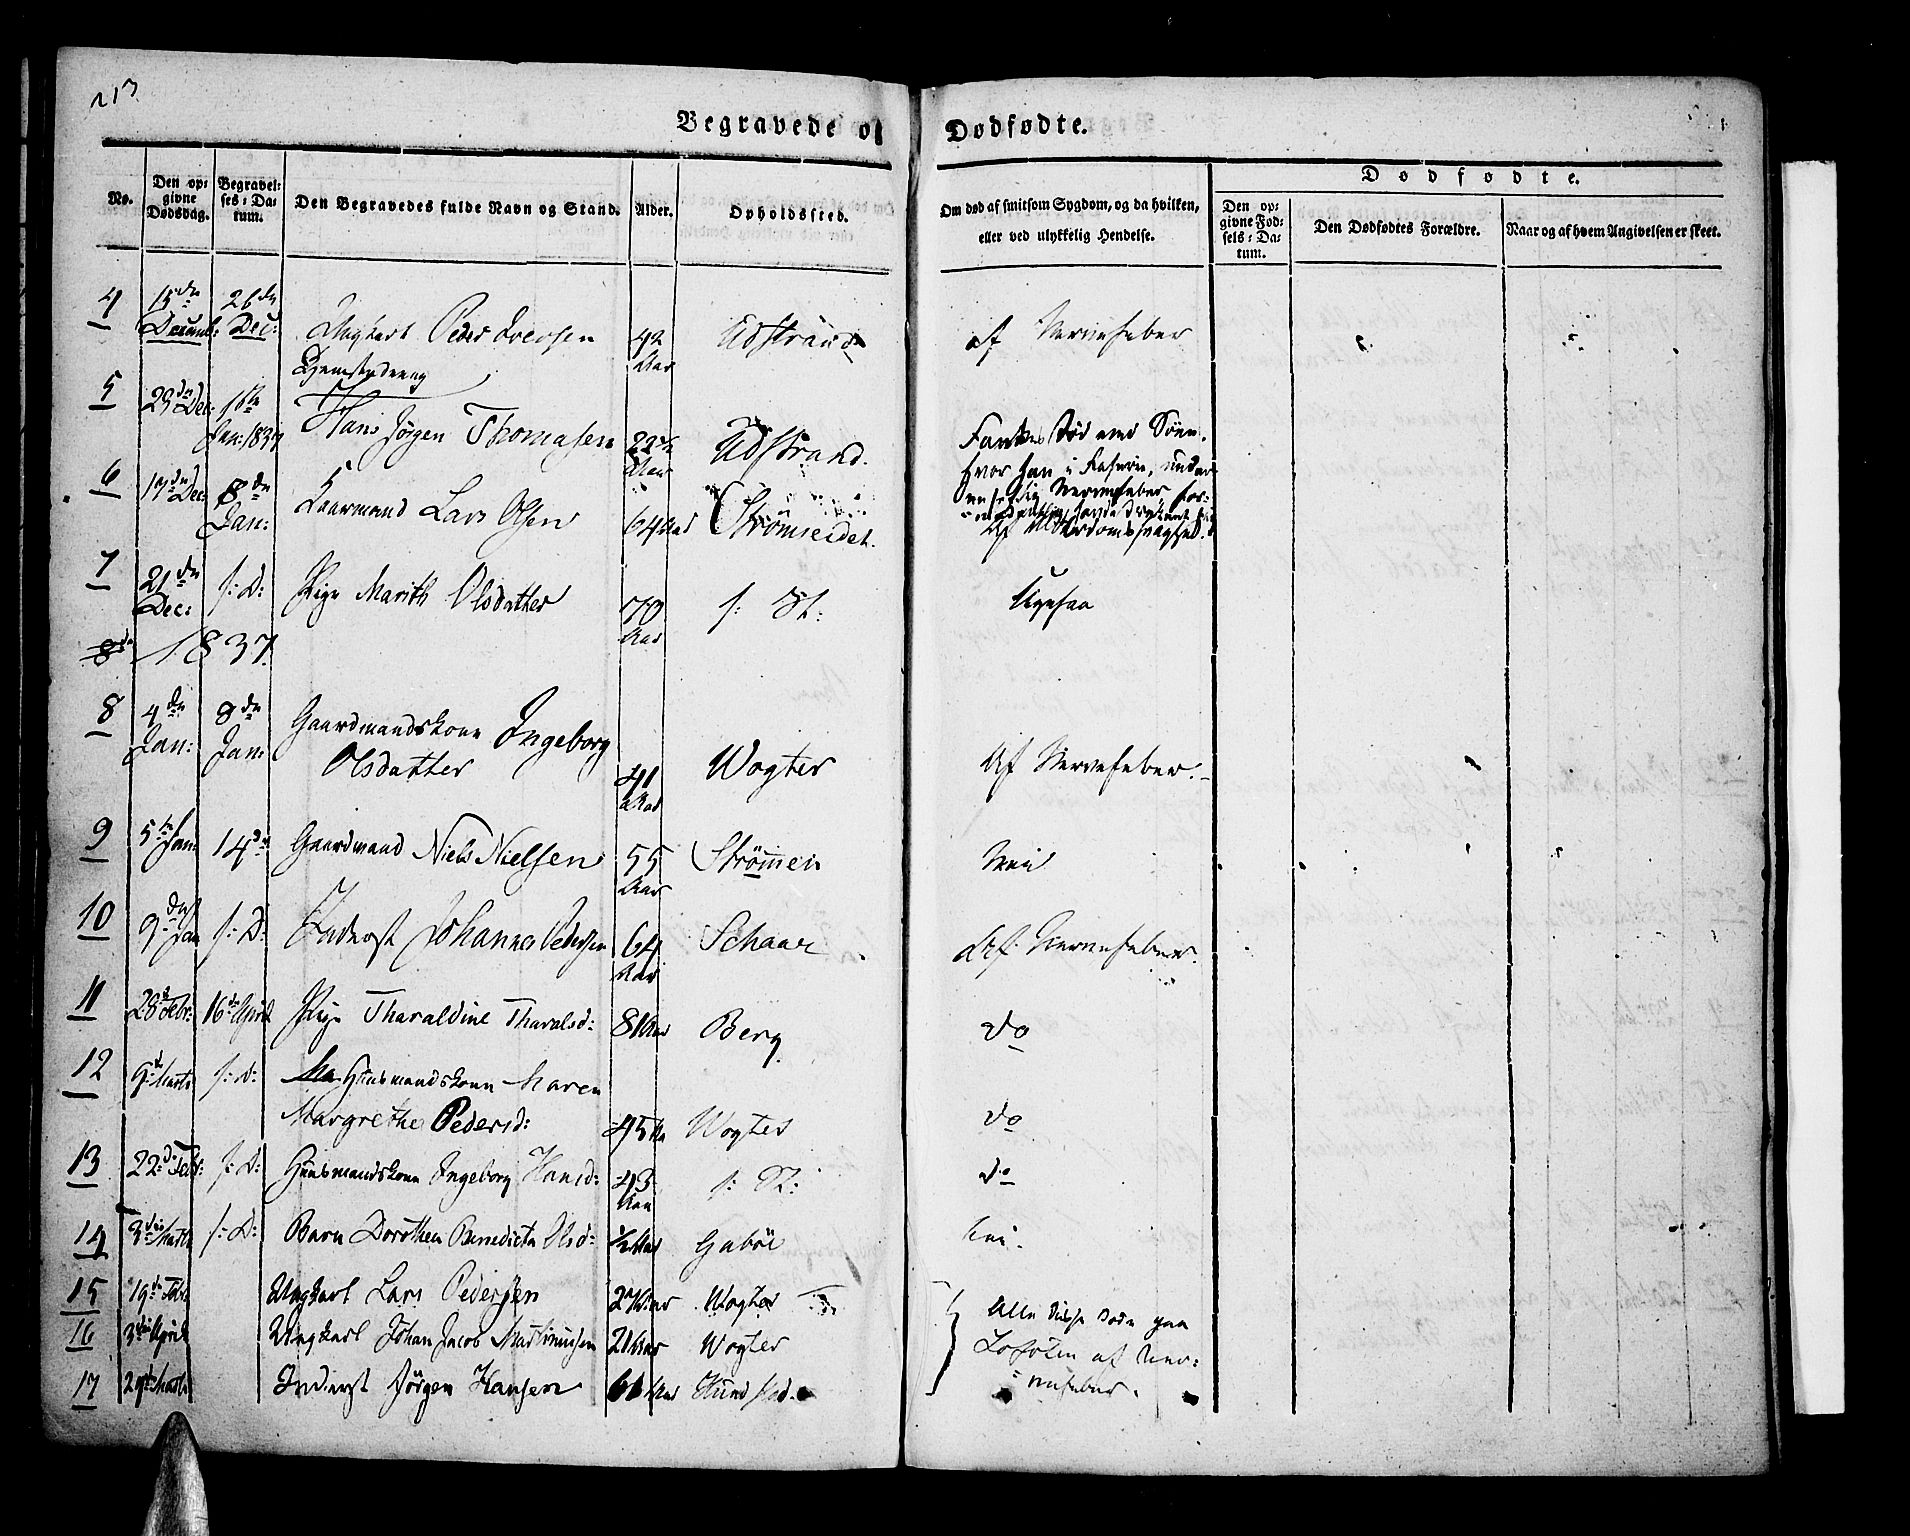 213
Begravede og Dødfødte.
No.
Den op-
givne
Dødsdag.
Begravel-
ses-Da-
tum.
Den Begravedes fulde Navn og Stand.
Alder.
Opholdssted.
Om død af smitsom Sygdom, og da hvilken,
eller ved ulykkelig Hendelse.
Dødfødte.
Den op-
givne Fød-
sels-Da-
tum.
Den Dødfødtes Forældre.
Naar og af hvem Angivelsen er skeet.
4 15de Decemb: 26de Dec: Ungkarl Peder Iversen 42 Aar Udstrand af Nervefeber
5 29de Dec: 1ste Jan: 1837 Hans Jørgen Thomasen 22½ Aar Udstrand.
Fantes død ved Søen,
hvor han i Raserie, under
en heftig Nervefeber, for-
6 17de Dec: 8de Jan: Kaarmand Lars Olsen 64 Aar Strømseidet. Af Alderdomssvaghed.
7 21de Dec: s: D: Pige Marith Olsdatter 70 Aar s: St: Ligesaa
8de 1837.
8 4de Jan: 8de Jan: Gaardmandskone Ingeborg
Olsdatter 41 Aar Wogter Af Nervefeber.
9 5te Jan: 14de Gaardmand Niels Nielsen 55 Aar Strømmen Nei
10 9de Jan s: D: Inderst Johannes Pedersen 64 Aar Schaar Af Nervefeber.
11 28de Febr: 16de April Pige Tharaldine Tharalsd: 8 Aar Berg do
12 9de Marts s: D: Ma Huusmandskone Maren
Margrethe Pedersd: 45 Aar Wogter do
13 22de Febr: s: D: Huusmandskone Ingeborg Hansd: 43 Aar s: St: do
14 3die Marts s: D: Barn Dorothea Benedicta Olsd: ½ Aar Gabøe Nei.
15 19de Febr Ungkarl Lars Pedersen Aar Wogter
16 3die April Ungkarl Johan Jacob Martinussen 21 Aar Wogter
17 Marts Inderst Jørgen Hansen 61 Aar Hundstad.
Alle disse døde paa
Lofoten af Ner-
vefeber.